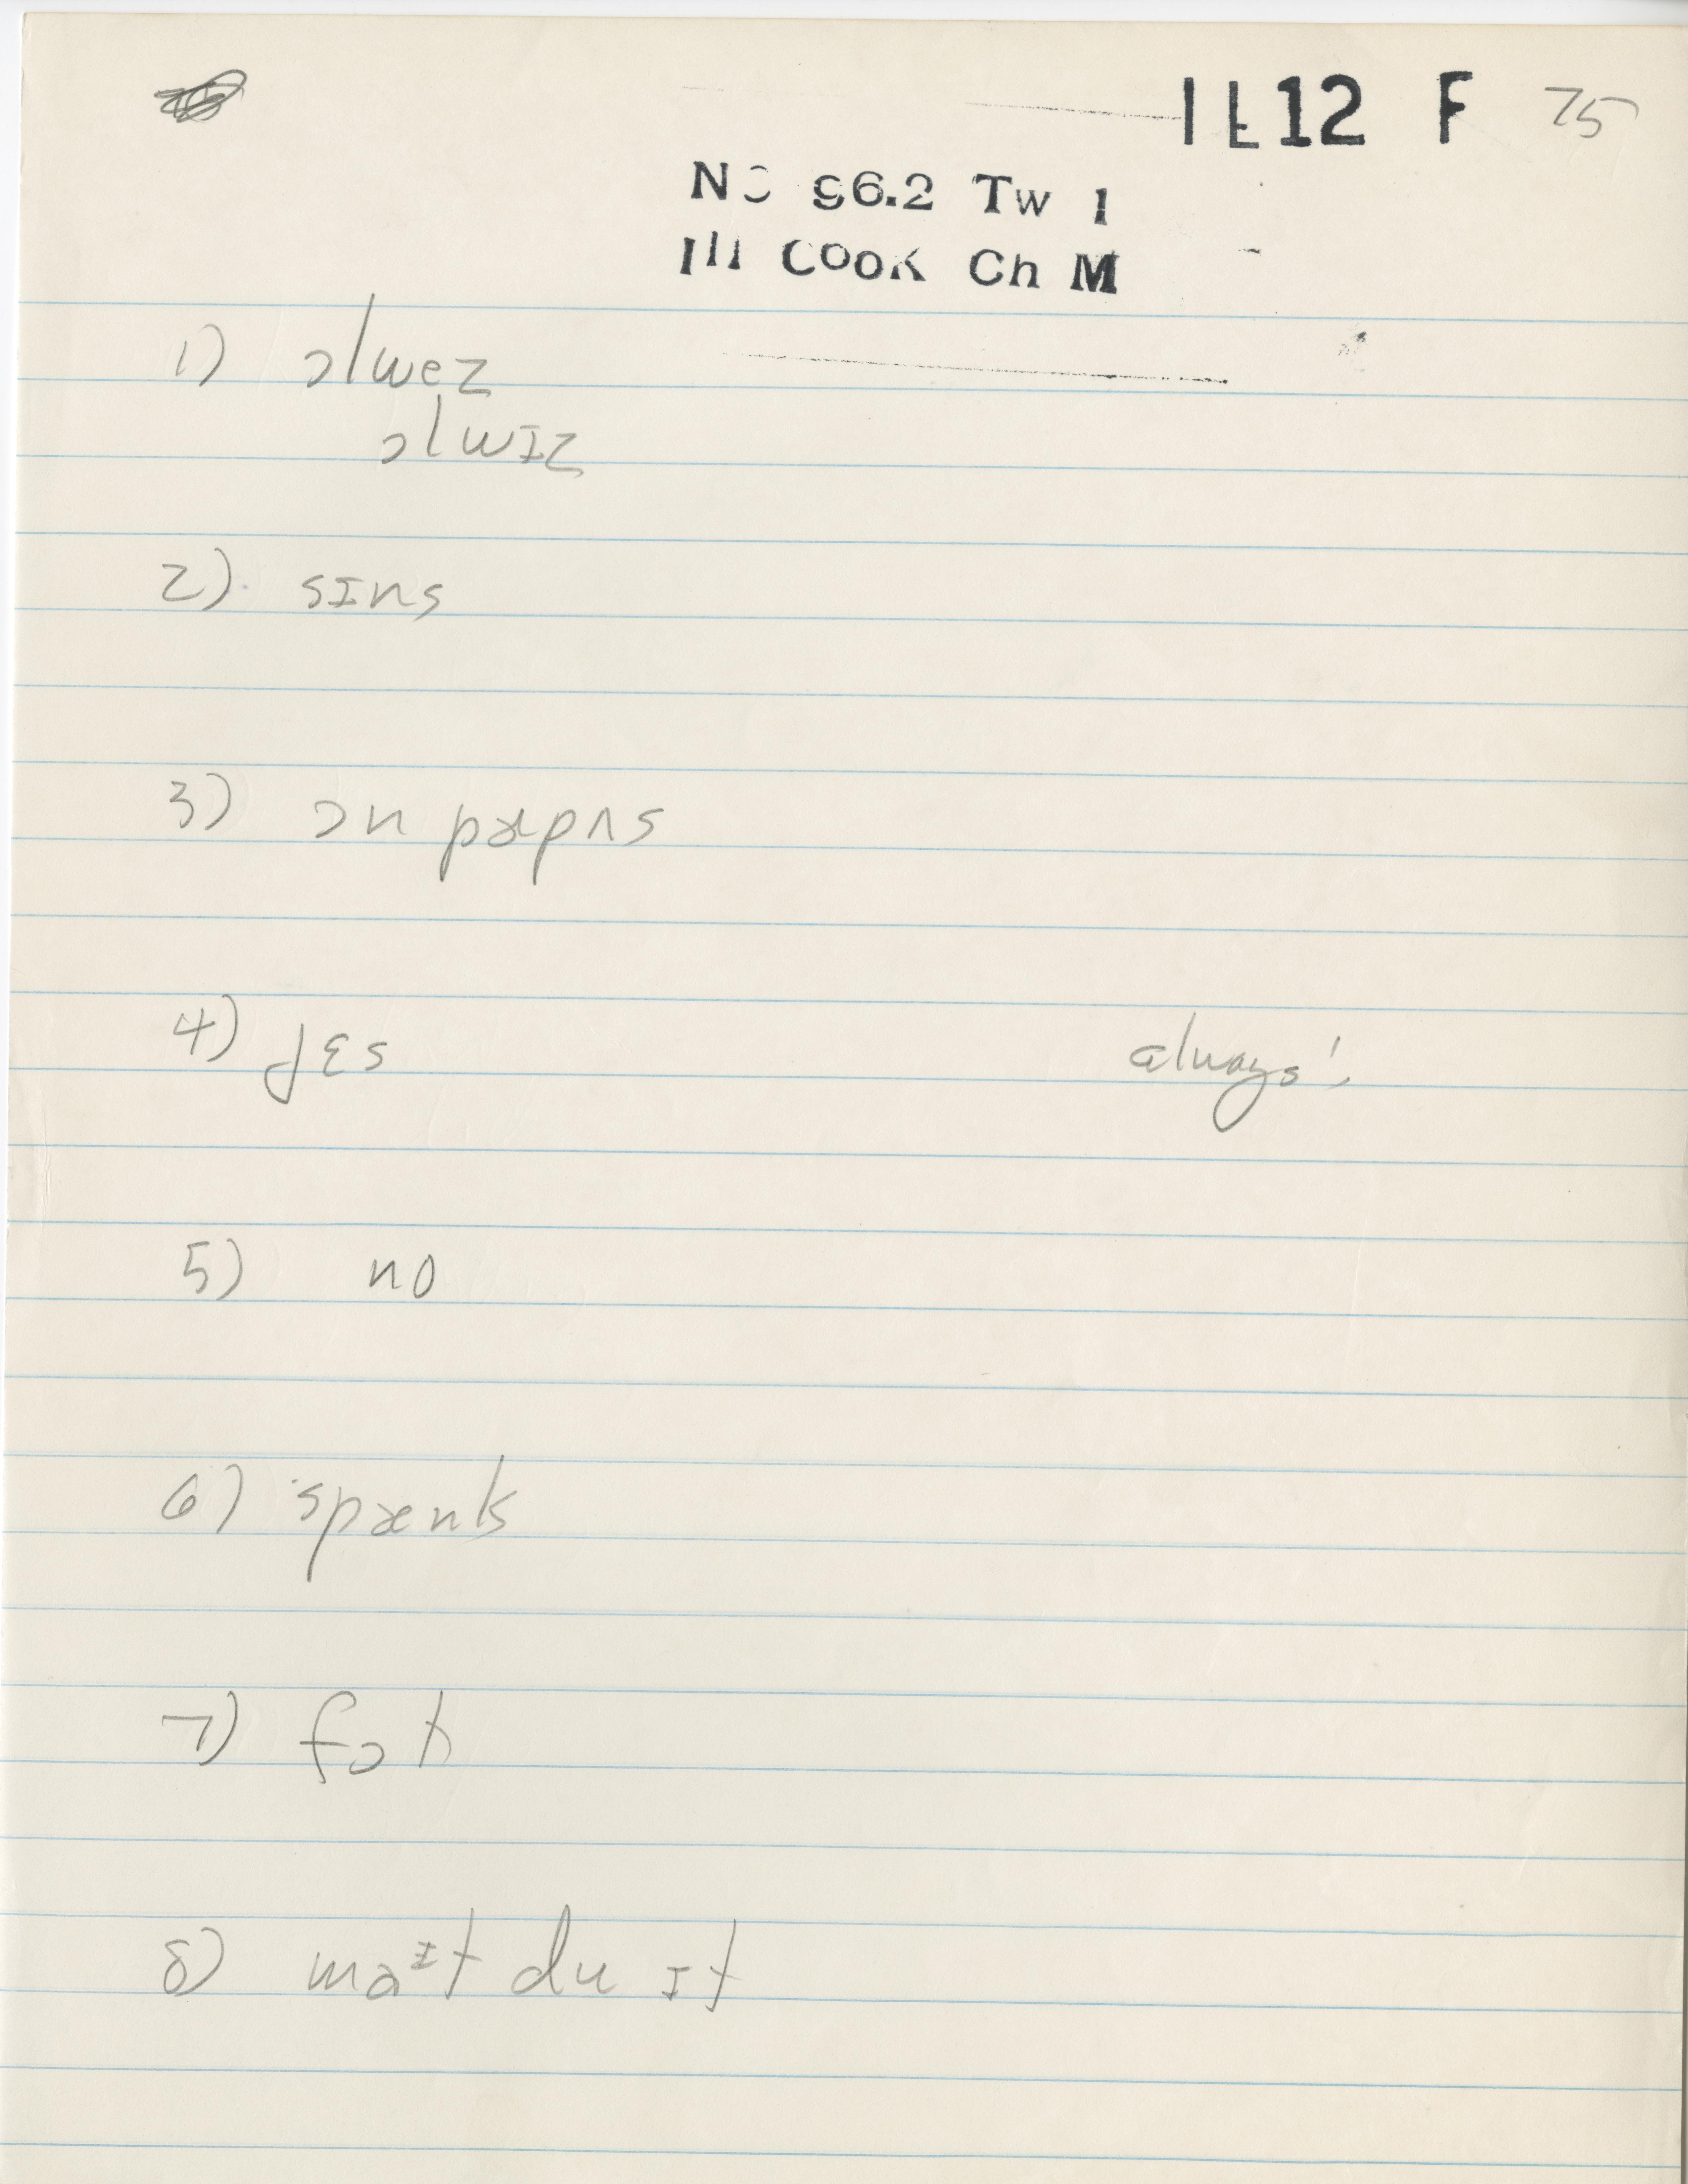 IL12 F 75
NC 96.2 Tw 1
Ill Cook Ch M
1) ɔlwez
ɔlwɪz
2) sɪns
3) ɔn pɝpʌs
4) jɛs always!
5) no
6) spænk
7) fɔt
8) maᶦt du ɪt